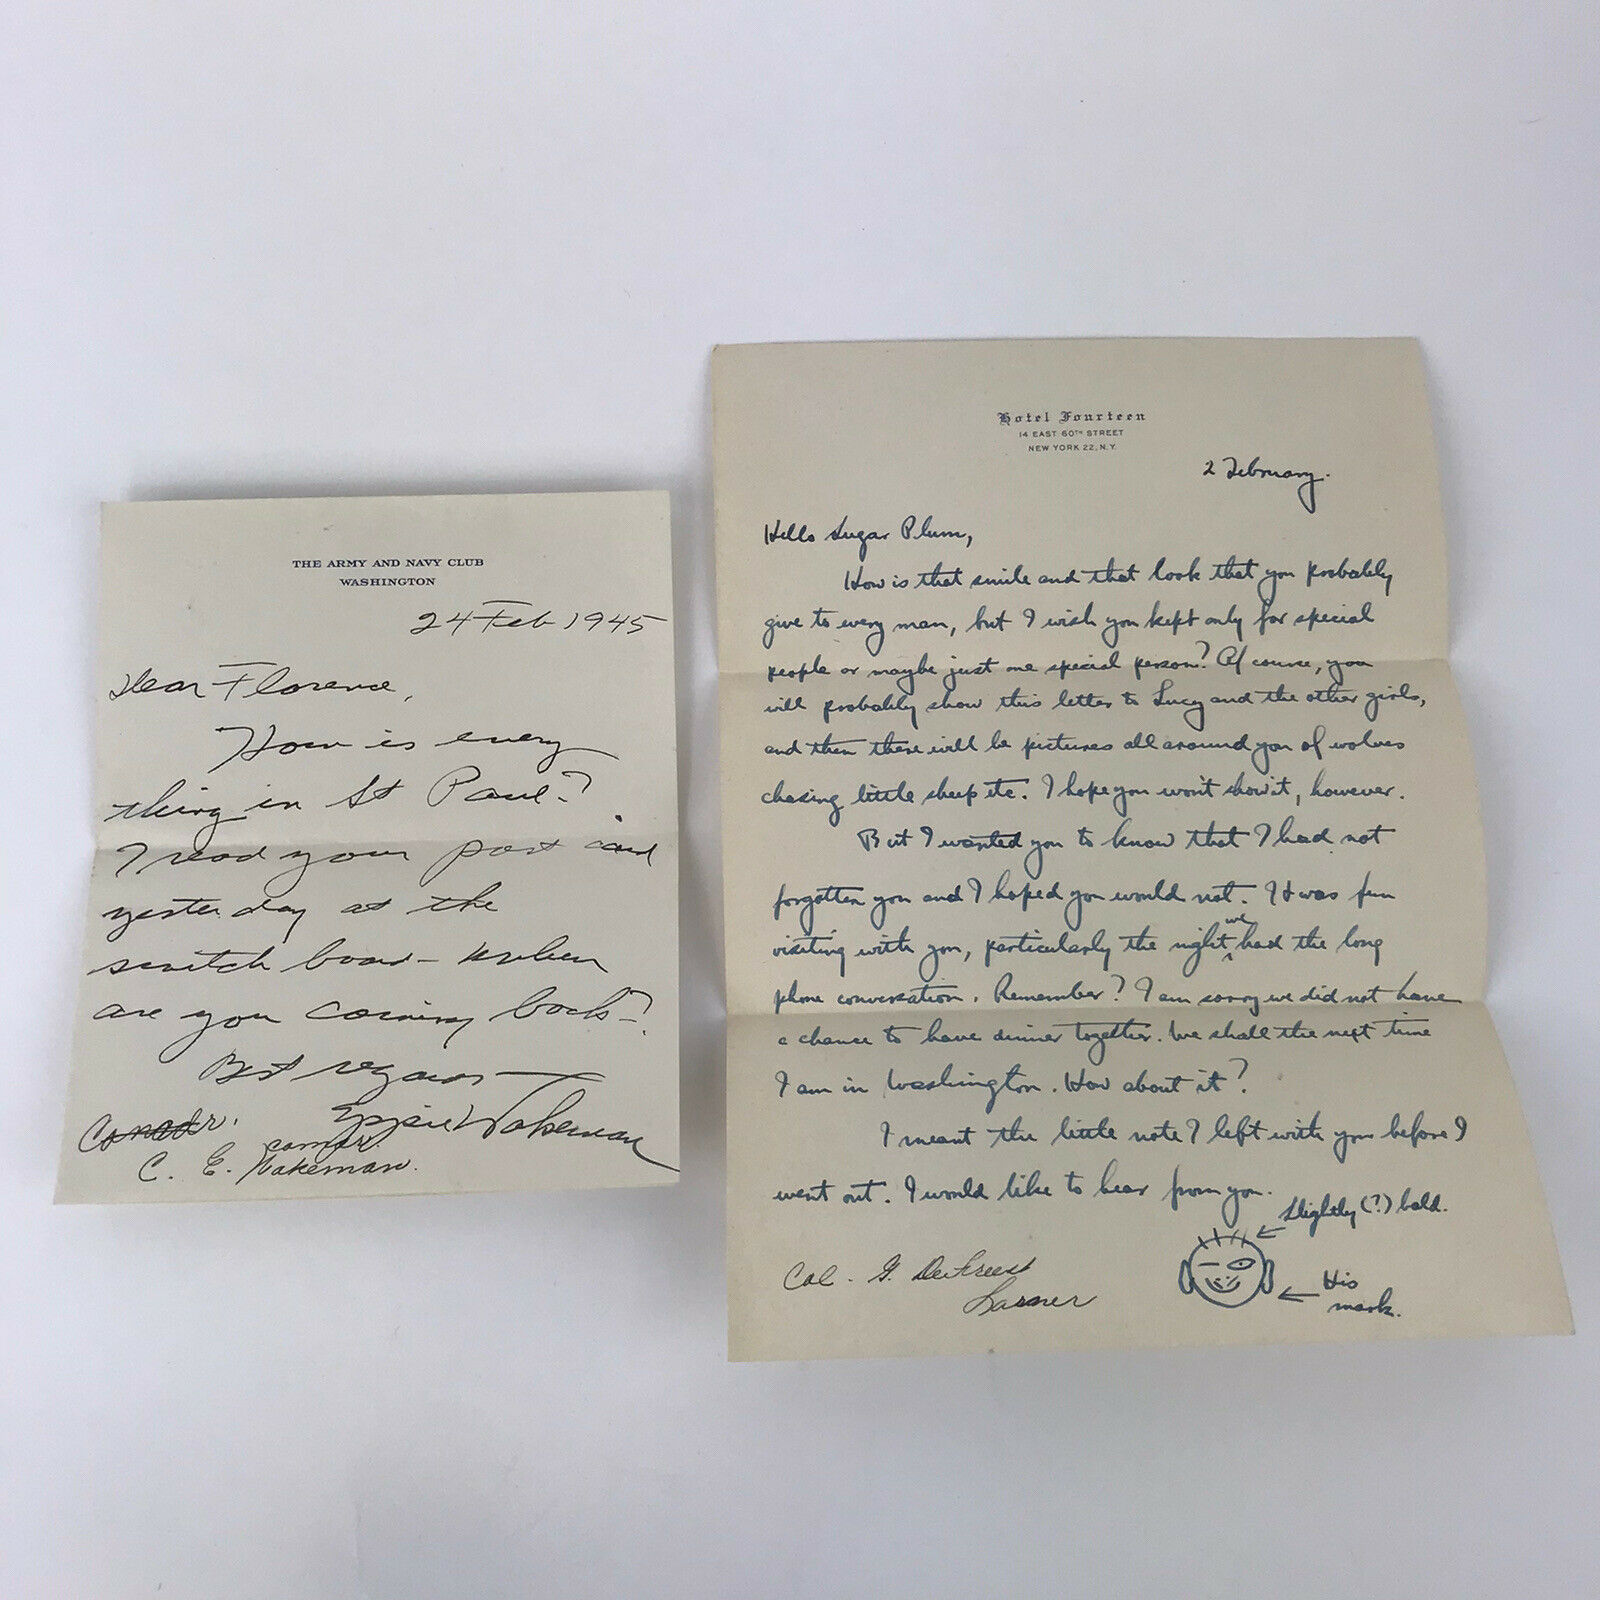 THE ARMY AND NAVY CLUB
WASHINGTON
24 Feb 1945
Dear Florence,
How is every
thing in St Paul?
I read your post card
yesterday at the
switch board - When
are you coming back?
Best regards
Eppie Wakeman
Comdr.
C. E. Wakeman.
Hotel Fourteen
14 EAST 60TH STREET
NEW YORK 22, N.Y.
2 February.
Hello Sugar Plum,
How is that smile and that look that you probably
give to every man, but I wish you kept only for special
people or maybe just one special person? Of course, you
will probably show this letter to Lucy and the other girls,
and then there will be pictures all around you of wolves
chasing little sheep etc. I hope you won't show it, however.
But I wanted you to know that I had not
forgotten you and I hoped you would not. It was fun
visiting with you, particularly the night we had the long
phone conversation. Remember? I am sorry we did not have
a chance to have dinner together. We shall the next time
I am in Washington. How about it?
I meant the little note I left with you before I
went out. I would like to hear from you.
Slightly (?) bald.
His
mark.
Col. G. DeFreest
Larner